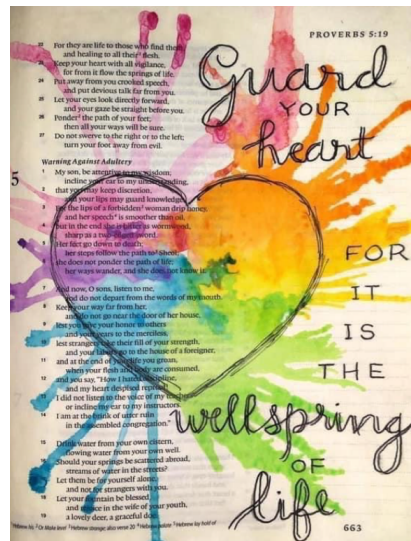 PROVERBS 5:19
Guard
YOUR
heart
FOR
IT
IS
THE
wellspring
OF
life
663
22 For they are life to those who find them,
and healing to all their flesh.
23 Keep your heart with all vigilance,
for from it flow the springs of life.
24 Put away from you crooked speech,
and put devious talk far from you.
25 Let your eyes look directly forward,
and your gaze be straight before you.
26 Ponder the path of your feet;
then all your ways will be sure.
27 Do not swerve to the right or to the left;
turn your foot away from evil.
Warning Against Adultery
5
1 My son, be attentive to my wisdom;
incline your ear to my understanding,
2 that you may keep discretion,
your lips may guard knowledge.
3 the lips of a forbidden woman drip honey,
and her speech is smoother than oil,
4 but in the end she is bitter as wormwood,
sharp as a two-edged sword.
5 Her feet go down to death;
her steps follow the path to Sheol;
6 she does not ponder the path of life;
her ways wander, and she does not know it.
7 And now, O sons, listen to me,
and do not depart from the words of my mouth.
8 Keep your way far from her,
and do not go near the door of her house,
9 lest you give your honor to others
and your years to the merciless,
10 lest strangers take their fill of your strength,
and your labors go to the house of a foreigner,
11 and at the end of your life you groan,
when your flesh and body are consumed,
12 and you say, "How I hated discipline,
and my heart despised reproof!
13 I did not listen to the voice of my teachers
or incline my ear to my instructors.
14 I am at the brink of utter ruin
in the assembled congregation."
15 Drink water from your own cistern,
flowing water from your own well.
16 Should your springs be scattered abroad,
streams of water in the streets?
17 Let them be for yourself alone,
and not for strangers with you.
18 Let your fountain be blessed,
and rejoice in the wife of your youth,
19 a lovely deer, a graceful doe.